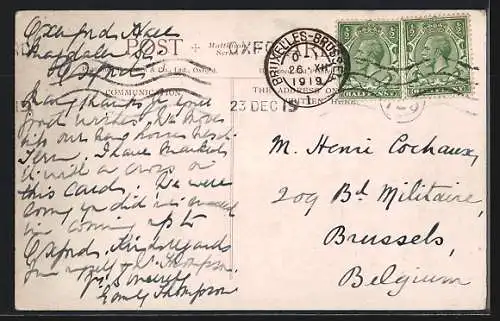 Oxenford Hall
Magdalen St.
Oxford
POST
& Co., Ltd., Oxford.
COMMUNICATION
THE ADDRESS ON
WRITTEN HERE.
OXFORD
23 DEC 19
BRUXELLES-BRUSSEL
26 XII
1919
HALFPENNY
HALFPENNY
Many thanks for your
good wishes. We move
into our new house next
Term. I have marked
it with a cross on
this card. We were
sorry you did not succeed
in coming up to
Oxford. Kind regards
from myself & Mr. Thompson.
Yrs sincerely
Emily Thompson
M. Henri Cochaux,
209 Bd. Militaire,
Brussels,
Belgium